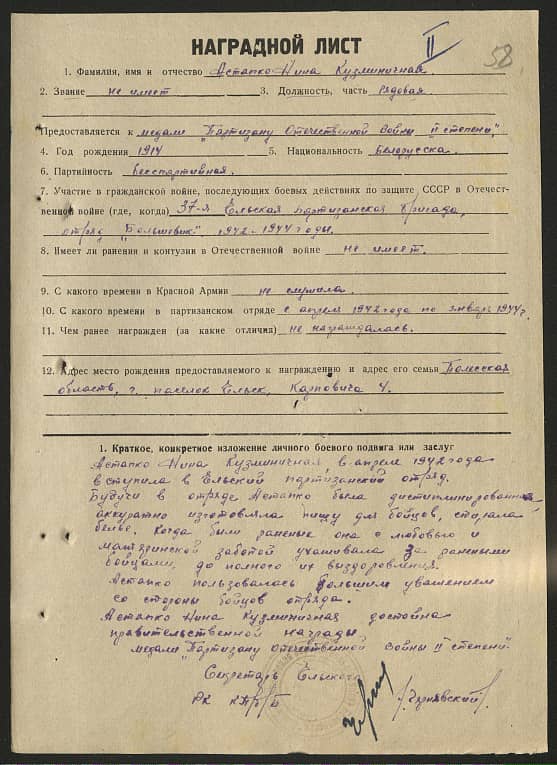 НАГРАДНОЙ ЛИСТ
II
58
1. Фамилия, имя и отчество Астапко Нина Кузминична.
2. Звание не имеет 3. Должность, часть Рядовая
Предоставляется к медали "Партизану Отечественной войны II степени"
4. Год рождения 1914 5. Национальность Белорусска.
6. Партийность Беспартийная.
7. Участие в гражданской войне, последующих боевых действиях по защите СССР в Отечест-
венной войне (где, когда) 37-я Ельская партизанская бригада,
отряд "Большевик" 1942-1944 годы.
8. Имеет ли ранения и контузии в Отечественной войне не имеет.
9. С какого времени в Красной Армии не служила.
10. С какого времени в партизанском отряде с апреля 1942 года по январь 1944 г.
11. Чем ранее награжден (за какие отличия) не награждалась.
12. Адрес место рождения предоставляемого к награждению и адрес его семьи Полесская
область, г. поселок Ельск, Карповича 4.
1. Краткое, конкретное изложение личного боевого подвига или заслуг
Астапко Нина Кузминична, в апреле 1942 года
вступила в Ельский партизанский отряд.
Будучи в отряде Астапко была дисциплинирована
аккуратно изготовляла пищу для бойцов, стирала
белье. Когда были раненые она с любовью и
материнской заботой ухаживала за ранеными
бойцами, до полного их выздоровления.
Астапко пользовалась большим уважением
со стороны бойцов отряда.
Астапко Нина Кузминична достойна
правительственной награды
медали "Партизану Отечественной войны II степени".
Секретарь Ельского
РК КП/б/Б /Чернявский/